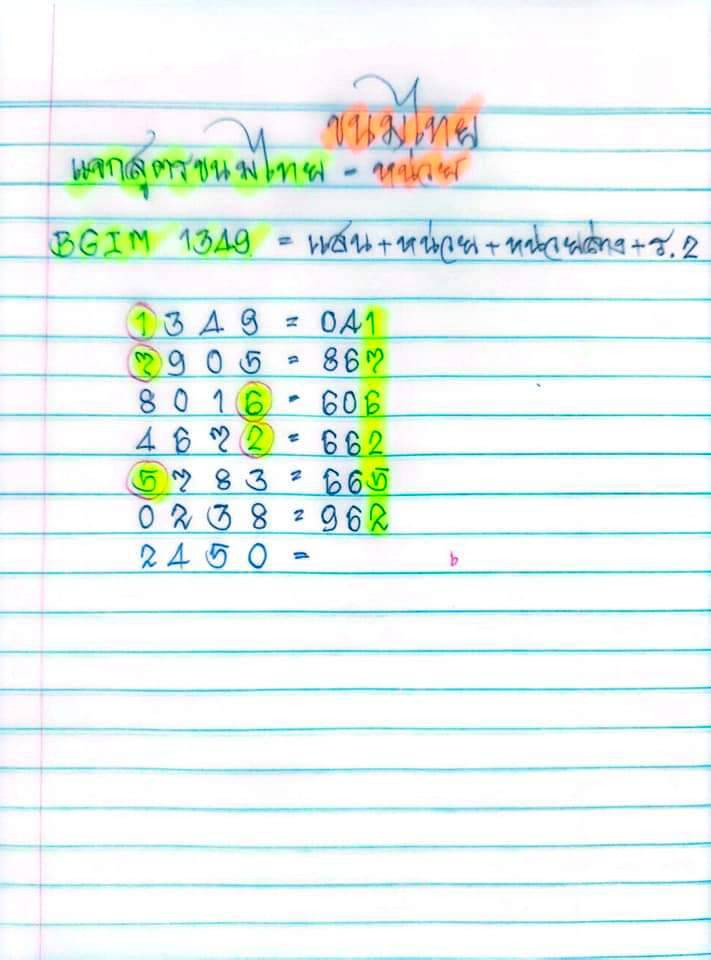 ขนมไทย
แจกสูตรขนมไทย - หน่วย
BGIM 1349 = แสน+หน่วย+หน่วยล่าง+ร.2
1 3 4 9 = 041
7 9 0 5 = 867
8 0 1 6 = 606
4 6 7 2 = 662
5 7 8 3 = 665
0 2 3 8 = 962
2 4 5 0 =